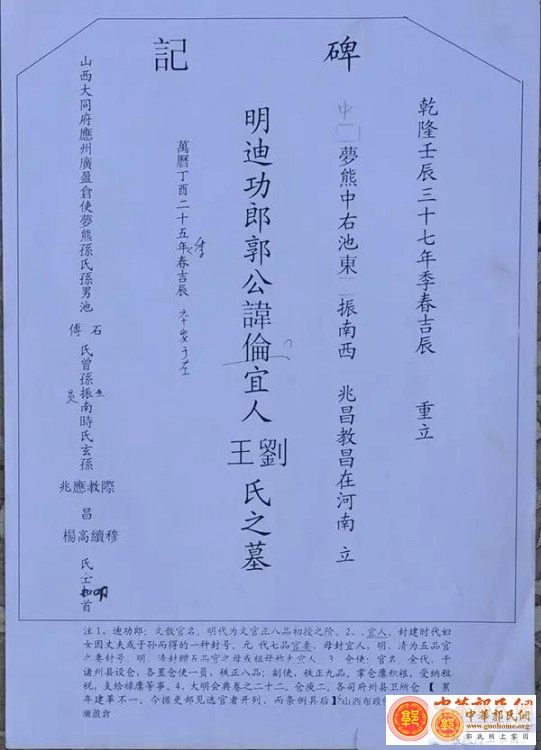 碑記
乾隆壬辰三十七年季春吉辰 重立
中
夢熊中右池東 振南西 兆昌教昌在河南 立
明迪功郎郭公諱倫宜人劉王氏之墓
萬曆丁酉二十五年春吉辰
季
山西大同府應州廣盈倉使夢熊孫氏孫男池
石
傅
氏曾孫振南時氏玄孫
際教應兆
昌
穆續高楊
氏士
首
注1、迪功郎:文散官名,明代为文官正八品初授之阶。2、、宜人,封建时代妇
女因丈夫或子孙而得的一种封号。元 代七品官妻、母封宜人,明、清为五品官
之妻封号。明、清封赠五品官之母或祖母亦夫宜人 3、仓使:官名 金代,于
诸州县设仓,各置仓使一员,秩正八品;副使,秩正九品,掌仓廪积粮,受纳租
税,支给禄廪等事。4、大明会典卷之二十二,仓庾二,各司府州县卫所仓 【 累
年建革不一、今据吏部见选官者开列、而条例具后】山西布政
廣盈倉
中華郭氏網
www.guohome.org
郭氏网上家园